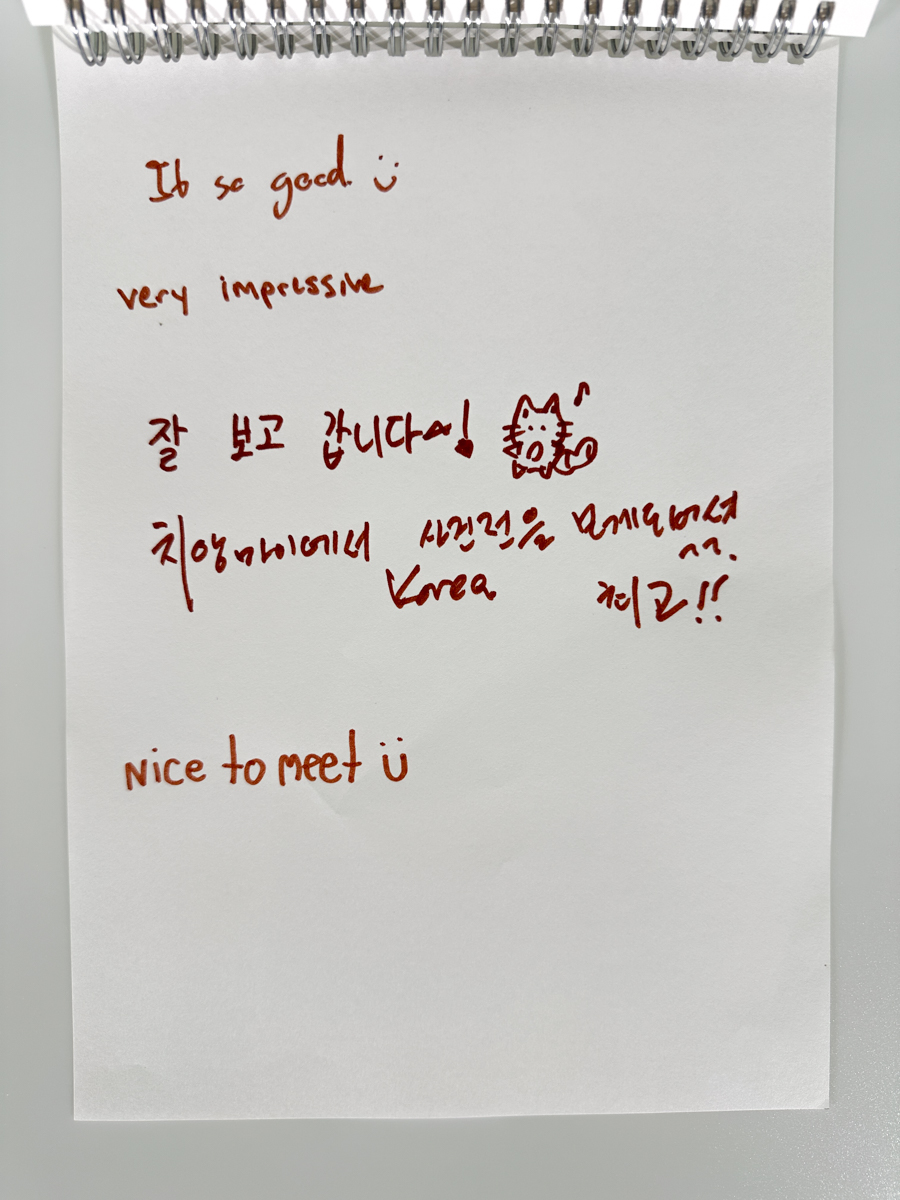 It so good. ü
very impressive
잘 보고 갑니다~!
치앙마이에서 사진전을 보게되어서 ^^.
Korea 최고!!
Nice to meet ü